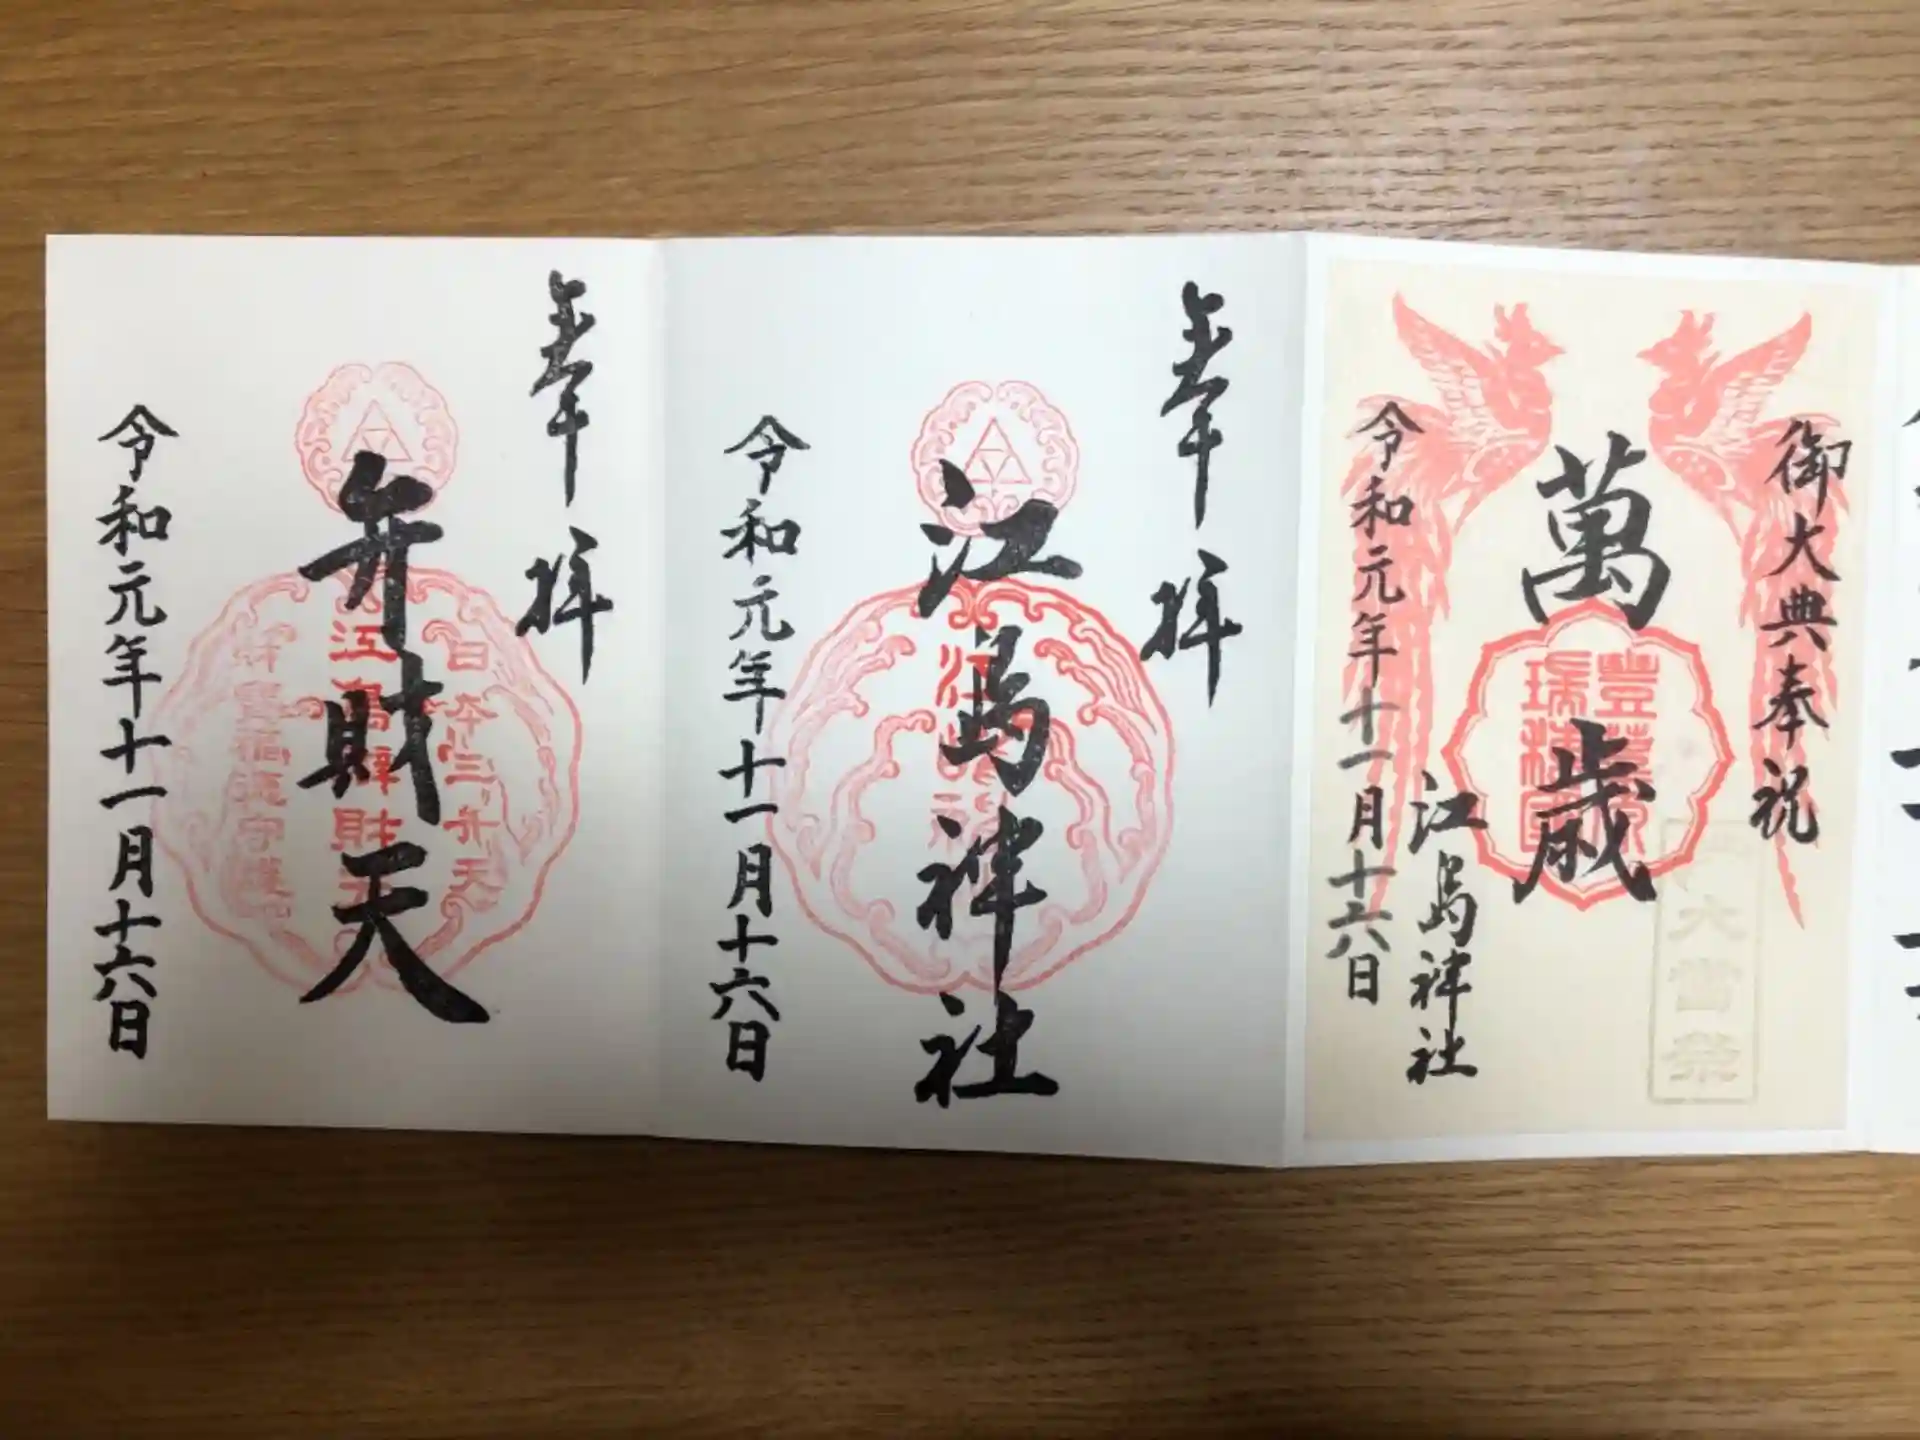 御大典奉祝
萬歳
豊葦原
瑞穂國
江島神社
令和元年十一月十六日
大嘗祭
奉拝
江島神社
令和元年十一月十六日
奉拝
弁財天
日本三弁天
江島辨財天
財寶福徳守護
令和元年十一月十六日